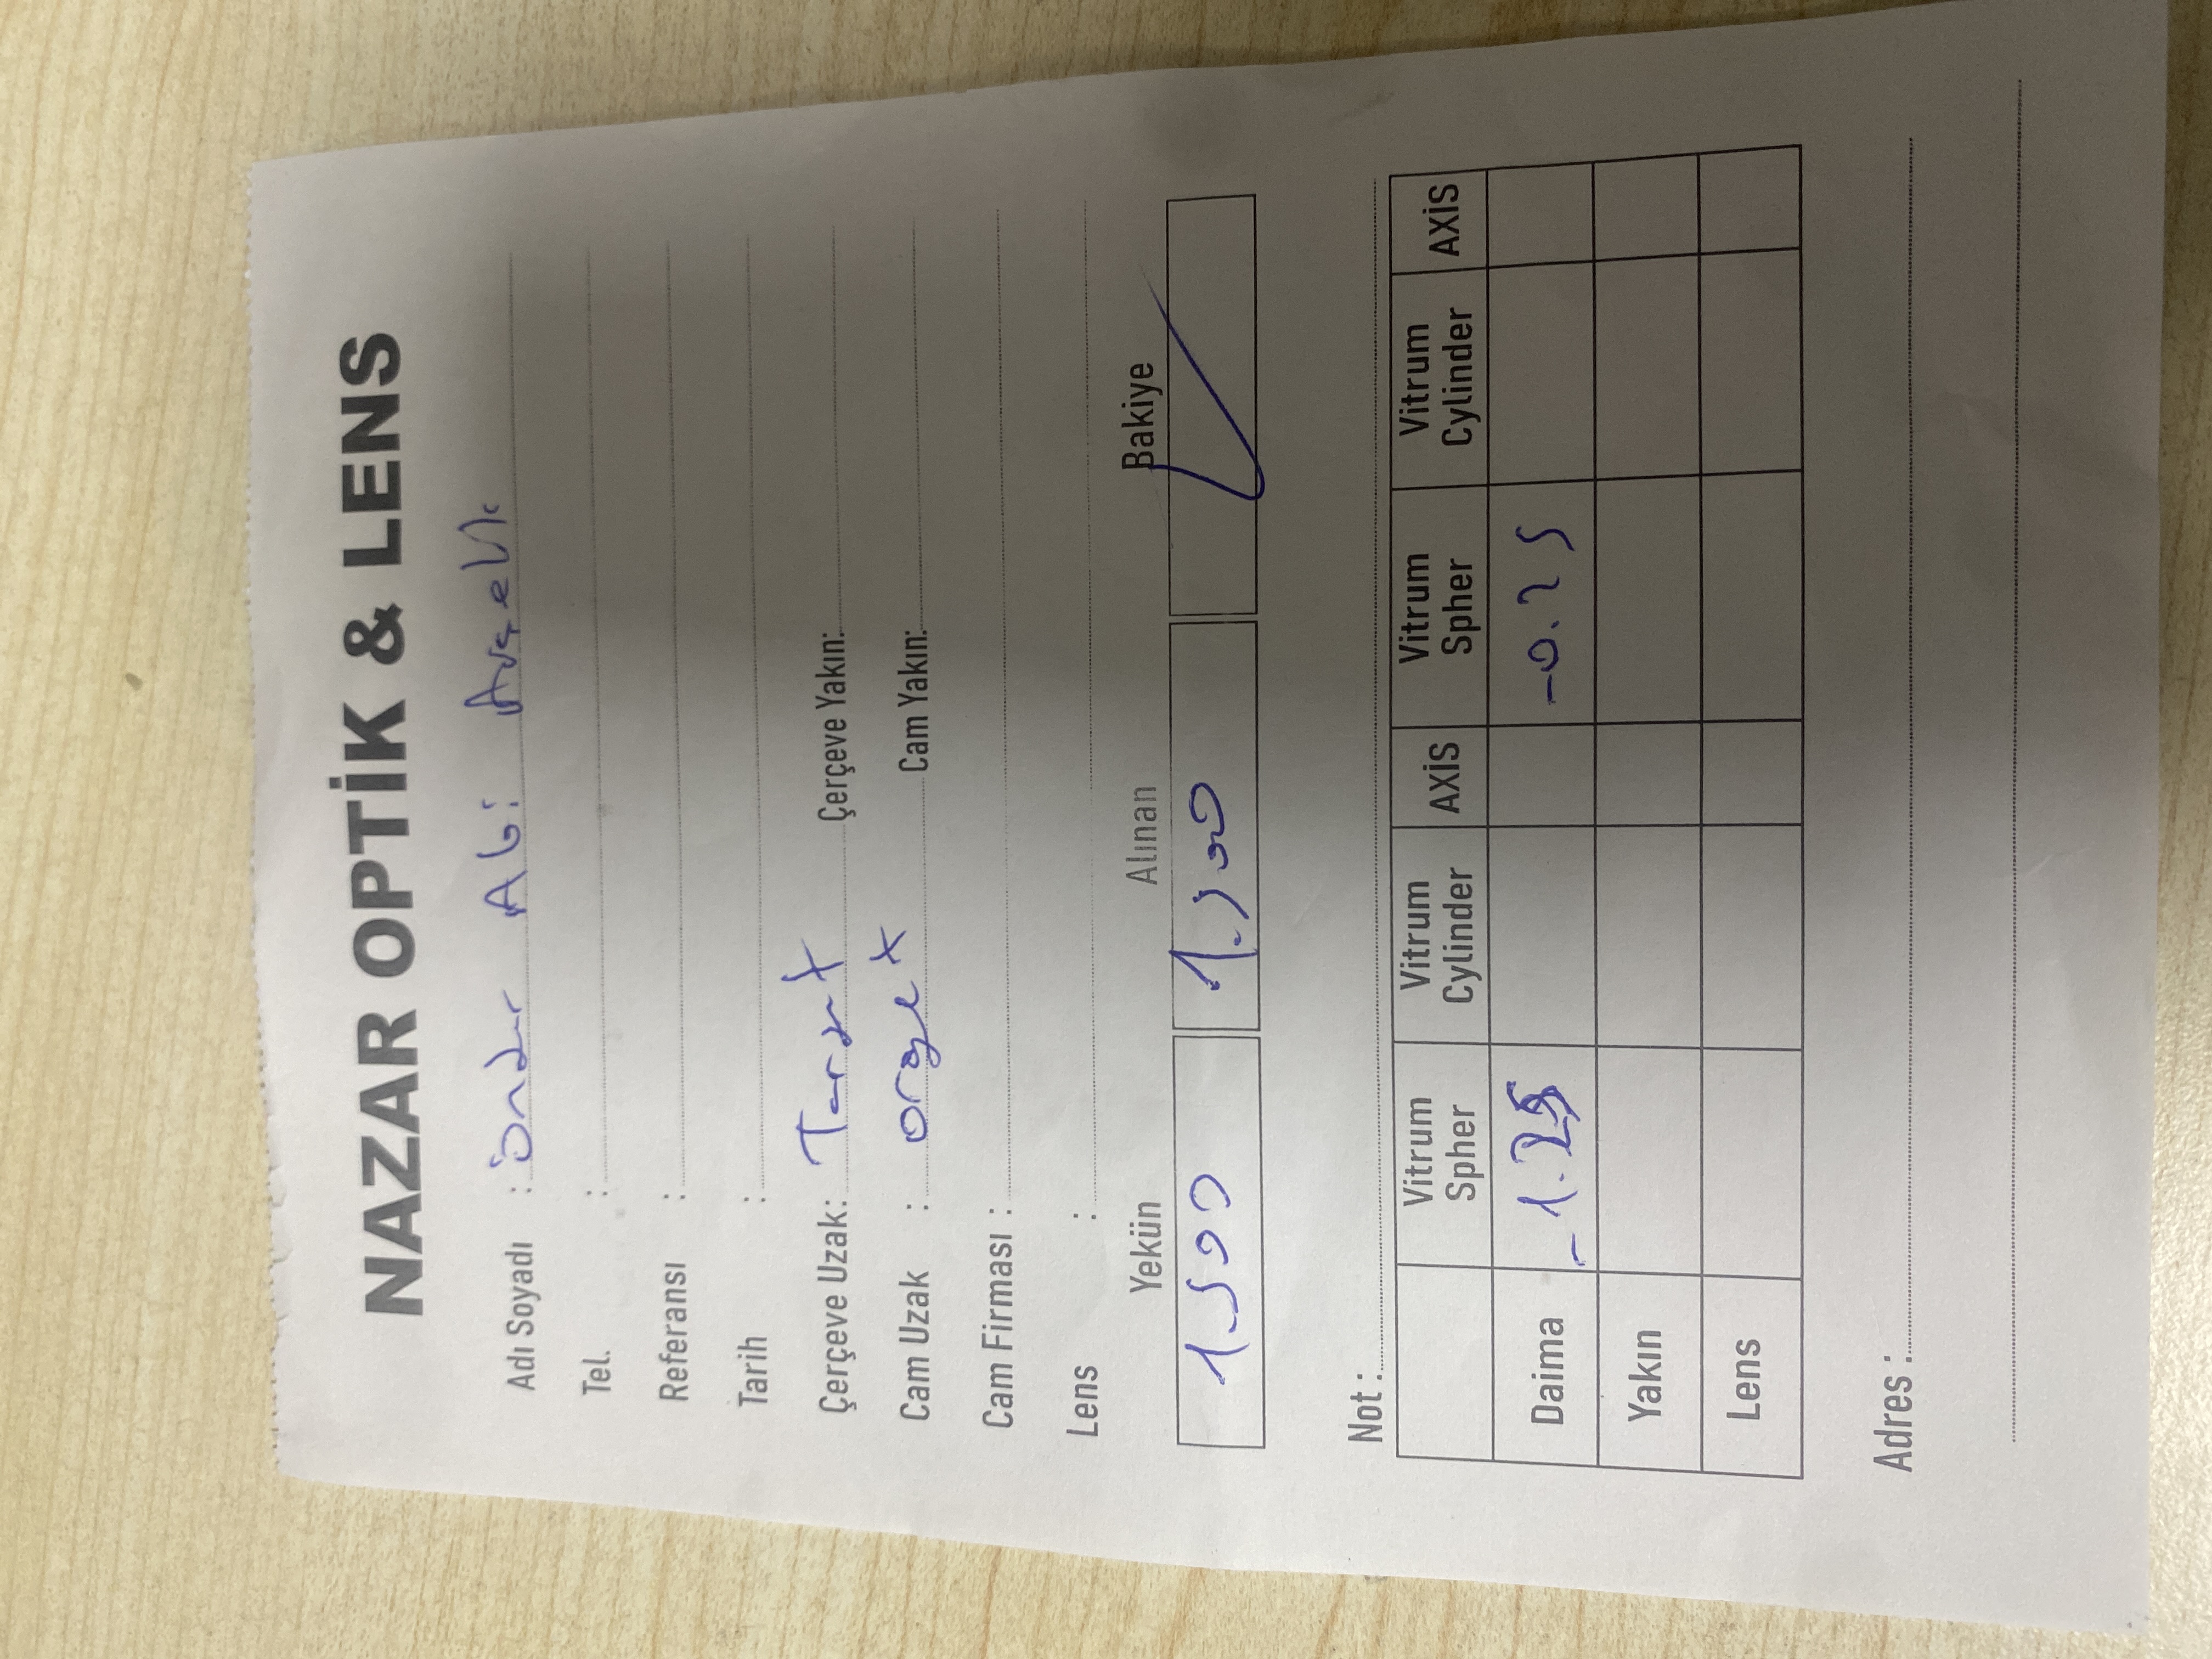 NAZAR OPTİK & LENS
Adı Soyadı : Önder Abi Arçelik
Tel. :
Referansı :
Tarih :
Çerçeve Uzak: Çerçeve Yakın:
Cam Uzak : Cam Yakın:
Cam Firması :
Lens :
Yekün Alınan Bakiye
1.500 1.500
Not :
Vitrum Spher Vitrum Cylinder AXİS Vitrum Spher Vitrum Cylinder AXİS
Daima -1.25 -0.25
Yakın
Lens
Adres :